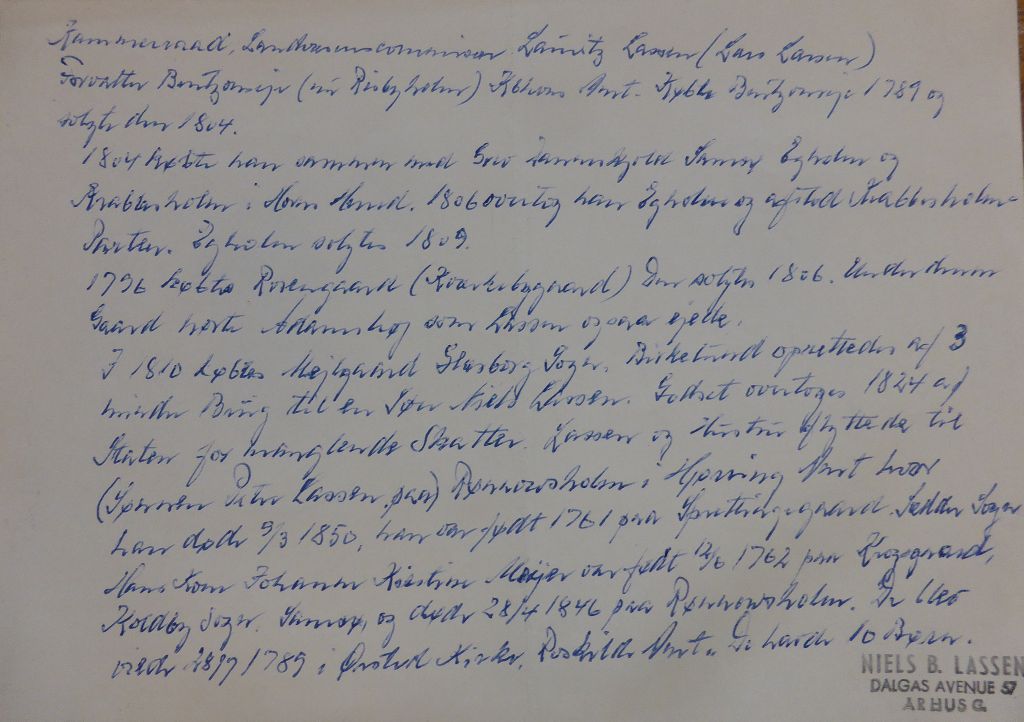 Kammerraad, Landvæsenscommissær Lauritz Lassen (Lars Lassen)
Forvalter Bentzonseje (nu Risbyholm) Kbhvns Amt. Købte Bentzonseje 1789 og
solgte den 1804.
1804 købte han sammen med Grev Danneskjold Samsø Egholm og
Krabbesholm i Horns Herred. 1806 overtog han Egholm og afstod Krabbesholm-
Parten. Egholm solgtes 1809.
1796 købte Rosengaard (Kværkebygaard) Den solgtes 1806. Under denne
Gaard hørte Adamshøj som Lassen ogsaa ejede.
I 1810 købtes Mejlgaard Glesborg Sogn, Birketund oprettedes af 3
mindre Brug til en Søn Niels Lassen. Godset overtoges 1824 af
Staten for manglende Skatter. Lassen og Hustru flyttede til
(Sønnen Peter Lassen, paa) Rønnovsholm i Hjørring Amt hvor
han døde 9/3 1850, han var født 1761 paa Sprettingegaard. Sædder Sogn
Hans Kone Johanne Kirstine Meijer var født 12/6 1762 paa
Koldby Sogn. Samsø, og døde 28/4 1846 paa Rønnovsholm. De blev
viede 1789 i Ørsted Kirke, Roskilde Amt. De havde 10 Børn.
NIELS B. LASSEN
DALGAS AVENUE 57
ÅRHUS C.